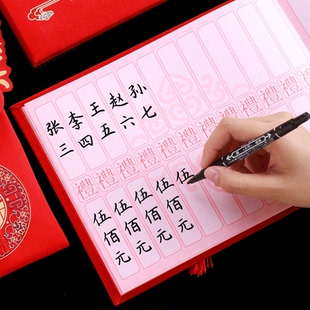 张三
李四
王五
赵六
孙七
禮禮禮禮禮禮禮禮禮禮
伍佰元
伍佰元
伍佰元
伍佰元
伍